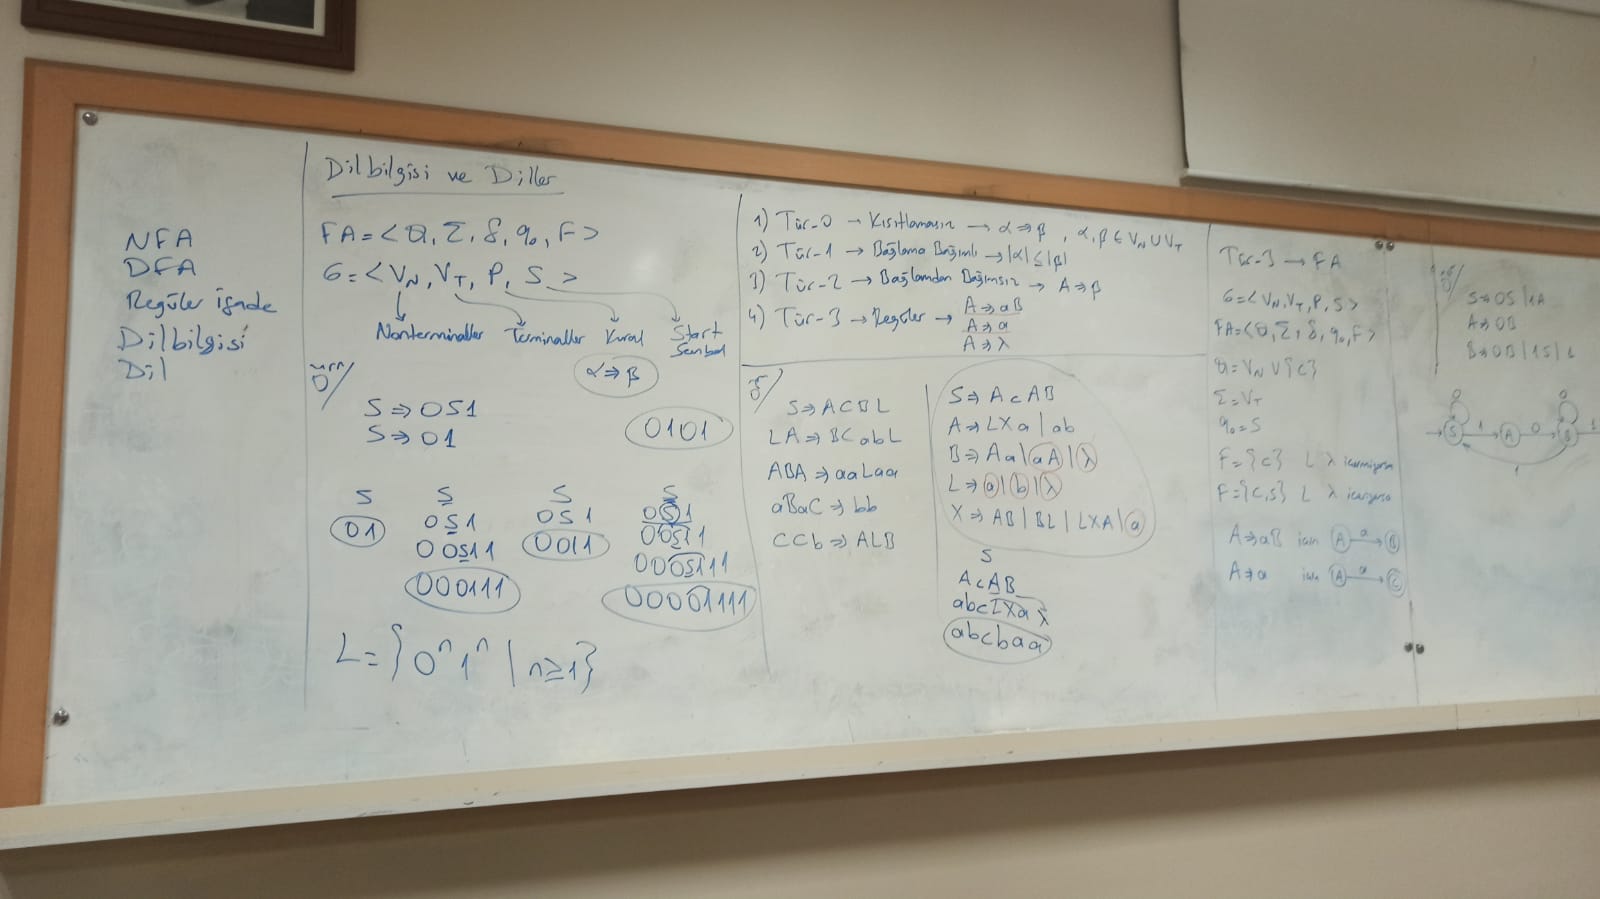 NFA
DFA
Regüler ifade
Dilbilgisi
Dil
Dilbilgisi ve Diller
FA = < Q, Σ, δ, q₀, F >
G = < V_N, V_T, P, S >
Nonterminaller Terminaller Kural Start Sembol
α ⇒ β
örn/
S ⇒ 0S1
S ⇒ 01
0101
S S S S
01 0S1 0S1 0S1
00S11 0011 00S11
000111 000S111
00001111
L = { 0ⁿ1ⁿ | n ≥ 1 }
1) Tür-0 → Kısıtlamasız → α ⇒ β, α, β ∈ V_N ∪ V_T
2) Tür-1 → Bağlama Bağımlı → |α| ≤ |β|
3) Tür-2 → Bağlamdan Bağımsız → A ⇒ β
4) Tür-3 → Regüler → A ⇒ aB
A ⇒ a
A ⇒ λ
ö/
S ⇒ ACBL
LA ⇒ BCabL
ABA ⇒ aaLaa
aBaC ⇒ bb
CCb ⇒ ALB
S ⇒ AcAB
A ⇒ LXa | ab
B ⇒ Aa | aA | λ
L ⇒ a | b | λ
X ⇒ AB | BL | LXA | a
S
AcAB
abcLXaλ
abcbaa
Tür-3 → FA
G = < V_N, V_T, P, S >
FA = < Q, Σ, δ, q₀, F >
Q = V_N ∪ {C}
Σ = V_T
q₀ = S
F = {C} L λ içermiyorsa
F = {C, S} L λ içeriyorsa
A ⇒ aB için A a B
A ⇒ a için A a C
ö/
S ⇒ 0S | 1A
A ⇒ 0B
B ⇒ 0B | 1S | 1
0 0
S 1 A 0 B 1
1